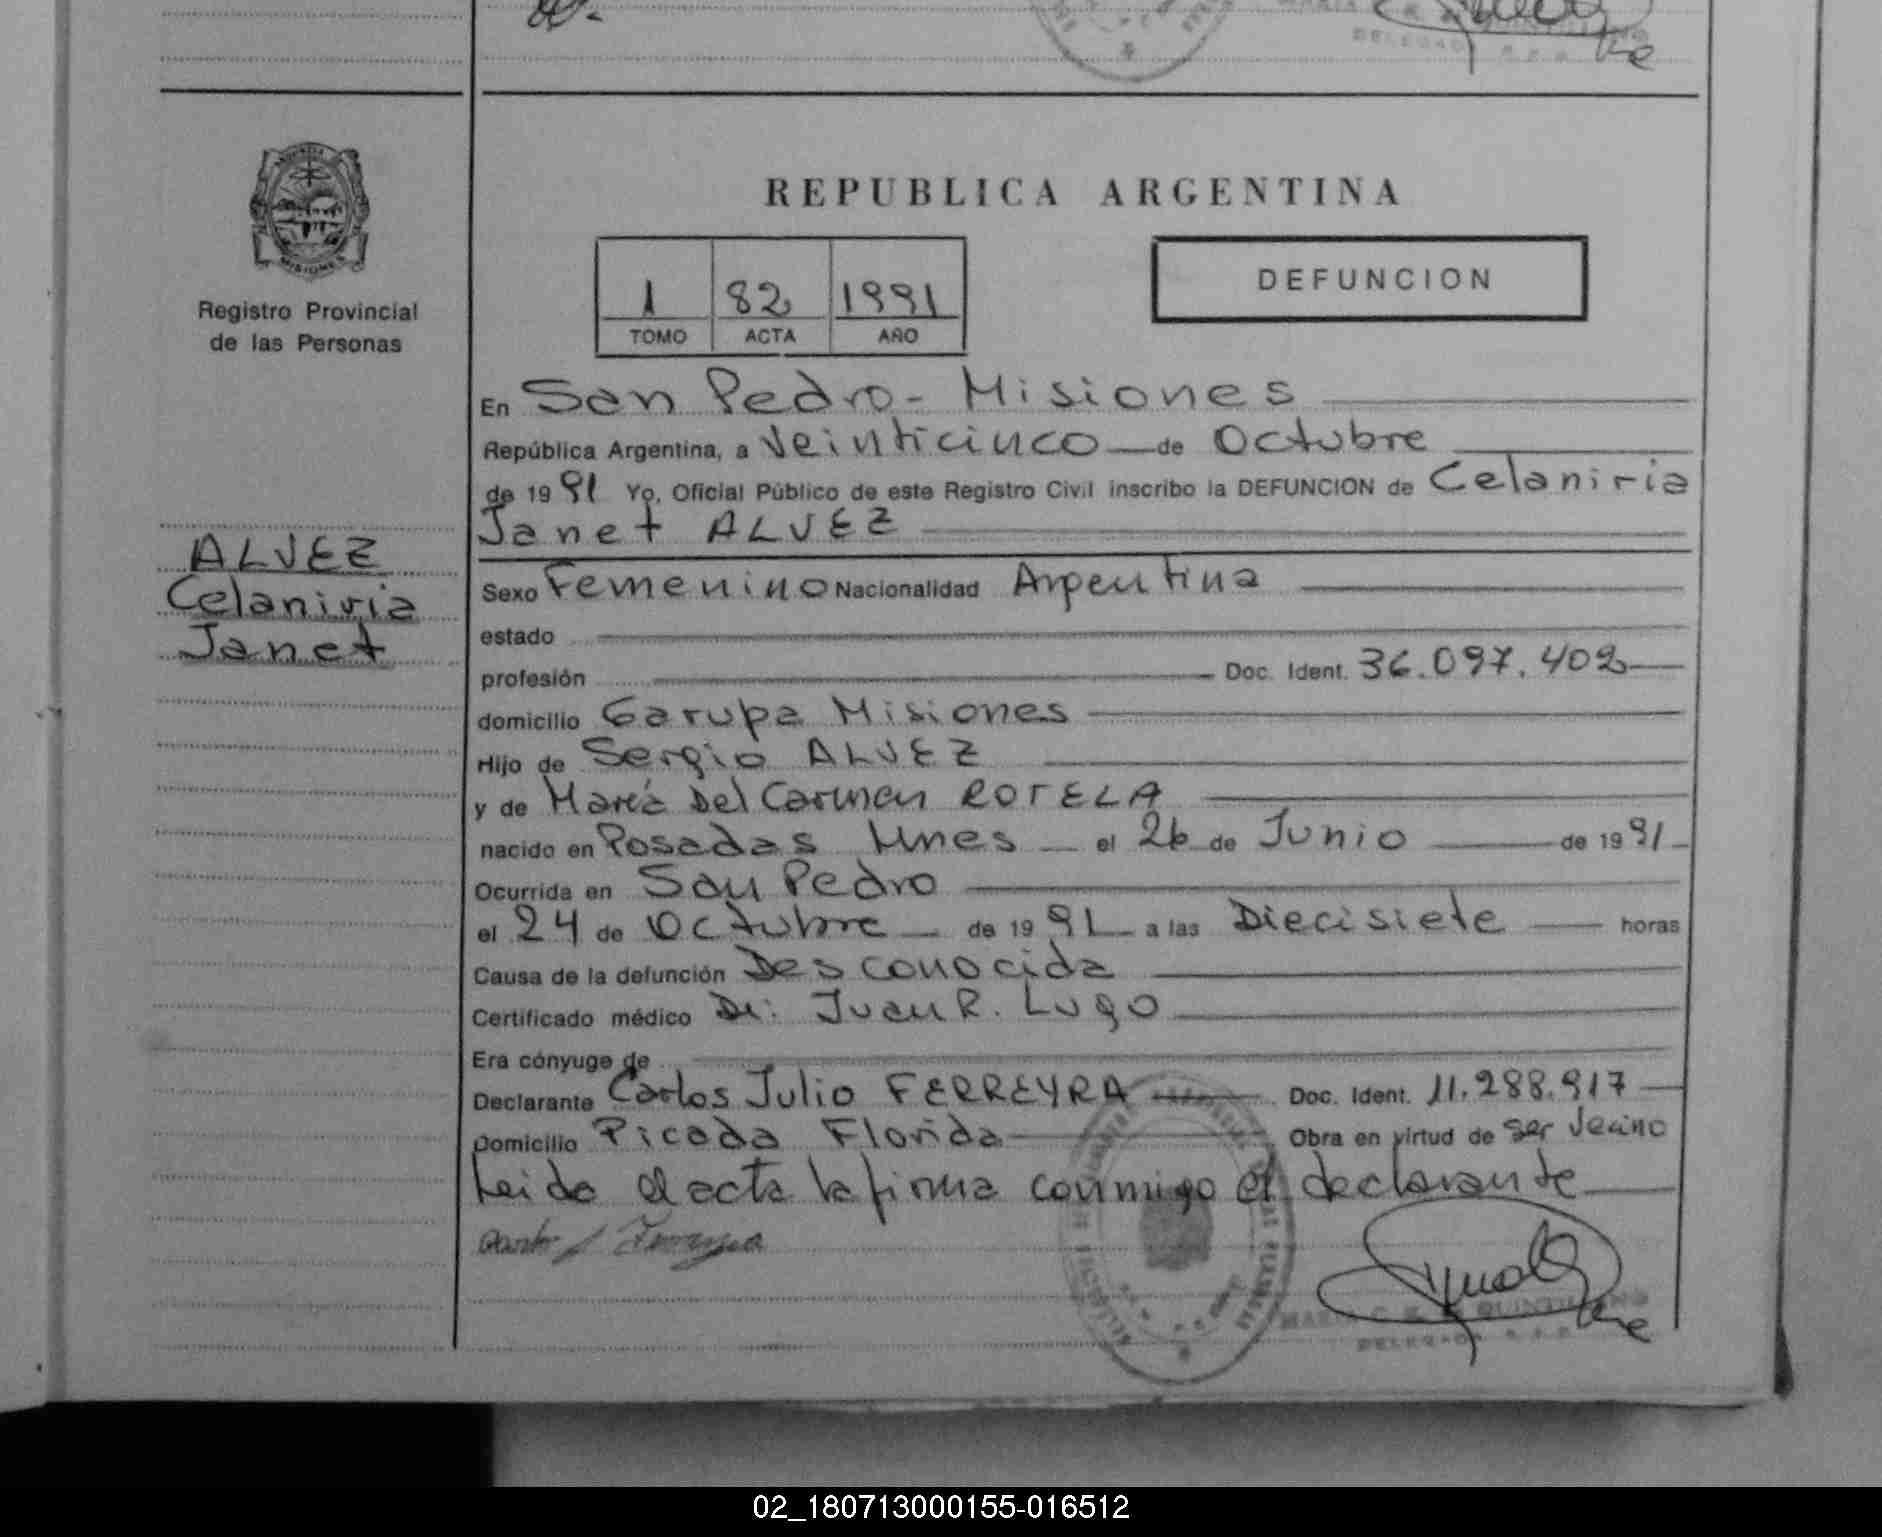 REPUBLICA ARGENTINA
MISIONES
Registro Provincial
de las Personas
1 82 1991
TOMO ACTA AÑO
DEFUNCION
ALVEZ
Celaniria
Janet
En San Pedro - Misiones
República Argentina, a Veinticinco de Octubre
de 1991 Yo, Oficial Público de este Registro Civil inscribo la DEFUNCION de Celaniria
Janet ALVEZ
Sexo Femenino Nacionalidad Argentina
estado
profesión Doc. Ident. 36.097.402
domicilio Garupa Misiones
Hijo de Sergio ALVEZ
y de María Del Carmen ROTELA
nacido en Posadas Mnes el 26 de Junio de 1991
Ocurrida en San Pedro
el 24 de Octubre de 1991 a las Diecisiete horas
Causa de la defunción Desconocida
Certificado médico Dr: Juan R. Lugo
Era cónyuge de
Declarante Carlos Julio FERREYRA Doc. Ident. 11.288.917
Domicilio Picada Florida Obra en virtud de ser Vecino
Leida el acta la firma conmigo el declarante
QUINTILIANO
DELEGADA
02_180713000155-016512